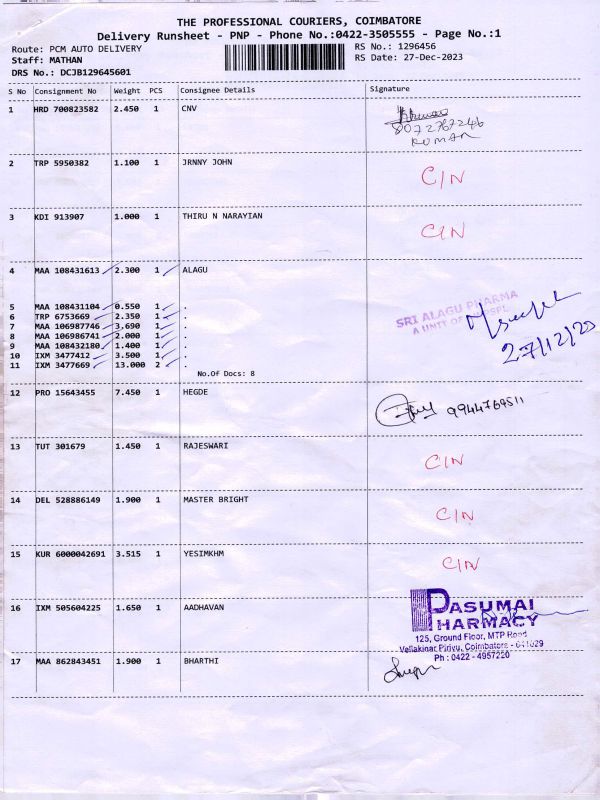 THE PROFESSIONAL COURIERS, COIMBATORE
Delivery Runsheet - PNP - Phone No.:0422-3505555 - Page No.:1
Route: PCM AUTO DELIVERY
RS No.: 1296456
Staff: MATHAN
RS Date: 27-Dec-2023
DRS No.: DCJB129645601
S No Consignment No Weight PCS Consignee Details Signature
1 HRD 700823582 2.450 1 CNV
8072767246
KUMAR
2 TRP 5950382 1.100 1 JRNNY JOHN C/N
3 KDI 913907 1.000 1 THIRU N NARAYIAN C/N
4 MAA 108431613 2.300 1 ALAGU
5 MAA 108431104 0.550 1 .
6 TRP 6753669 2.350 1 .
7 MAA 106987746 3.690 1 .
8 MAA 106986741 2.000 1 .
9 MAA 108432180 1.400 1 .
10 IXM 3477412 3.500 1 .
11 IXM 3477669 13.000 2 .
SRI ALAGU PHARMA
A UNIT OF
27/12/20
No.Of Docs: 8
12 PRO 15643455 7.450 1 HEGDE 9944769511
13 TUT 301679 1.450 1 RAJESWARI C/N
14 DEL 528886149 1.900 1 MASTER BRIGHT C/N
15 KUR 6000042691 3.515 1 YESIMKHM C/N
16 IXM 505604225 1.650 1 AADHAVAN
PASUMAI
PHARMACY
125, Ground Floor, MTP Road
Vellakinar Pirivu, Coimbatore - 641029
Ph : 0422 - 4957220
17 MAA 862843451 1.900 1 BHARTHI